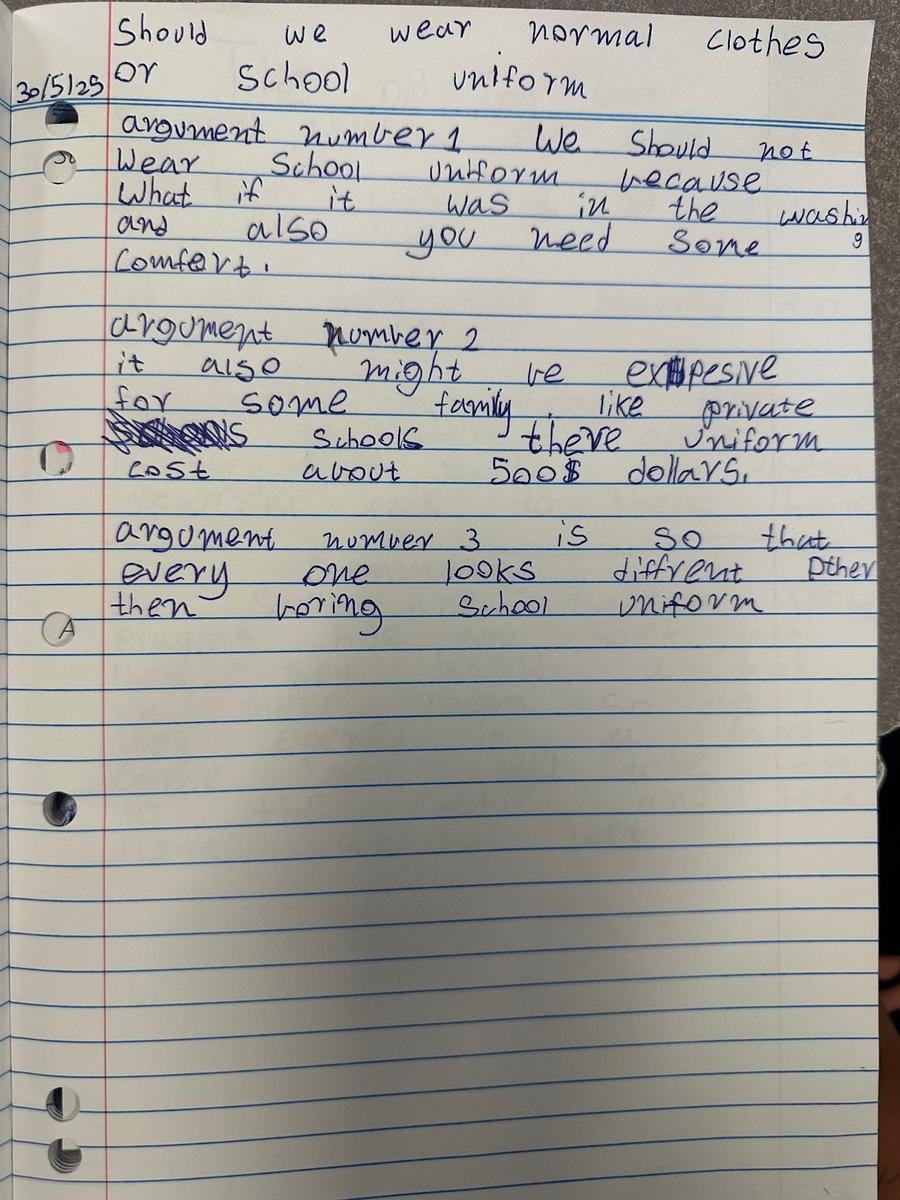 Should we wear normal clothes
30/5/25 or School uniform
argument number 1 We Should not
Wear School uniform because
What if it was in the washing
and also you need Some
Comfert.
argument number 2
it also might be expesive
for some family. like private
schools there uniform
cost about 500$ dollars.
argument number 3 is so that
every one looks diffrent other
then boring School uniform